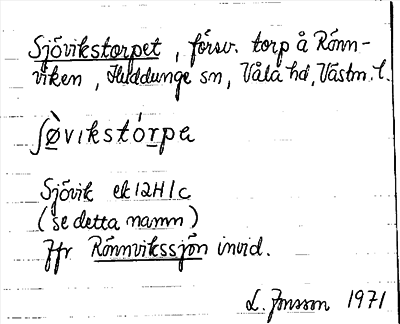 Sjövikstorpet, försv. torp å Rönn-
viken, Huddunge sn, Våla hd, Västm. l.
ʃø̀vikstórpa
Sjövik ek 12H1c
(se detta namn)
Jfr Rönnvikssjön invid.
L. Jonsson 1971